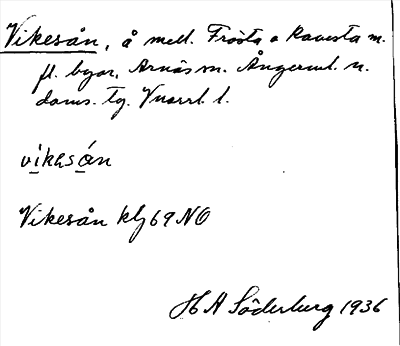 Vikesån, å mell. Frösta o Ravesta m.
fl. byar, Arnäs sn. Ångerml. n.
doms. tg. Vnorrl. l.
vikesån
Vikesån klj 69 NO
H A Söderberg 1936